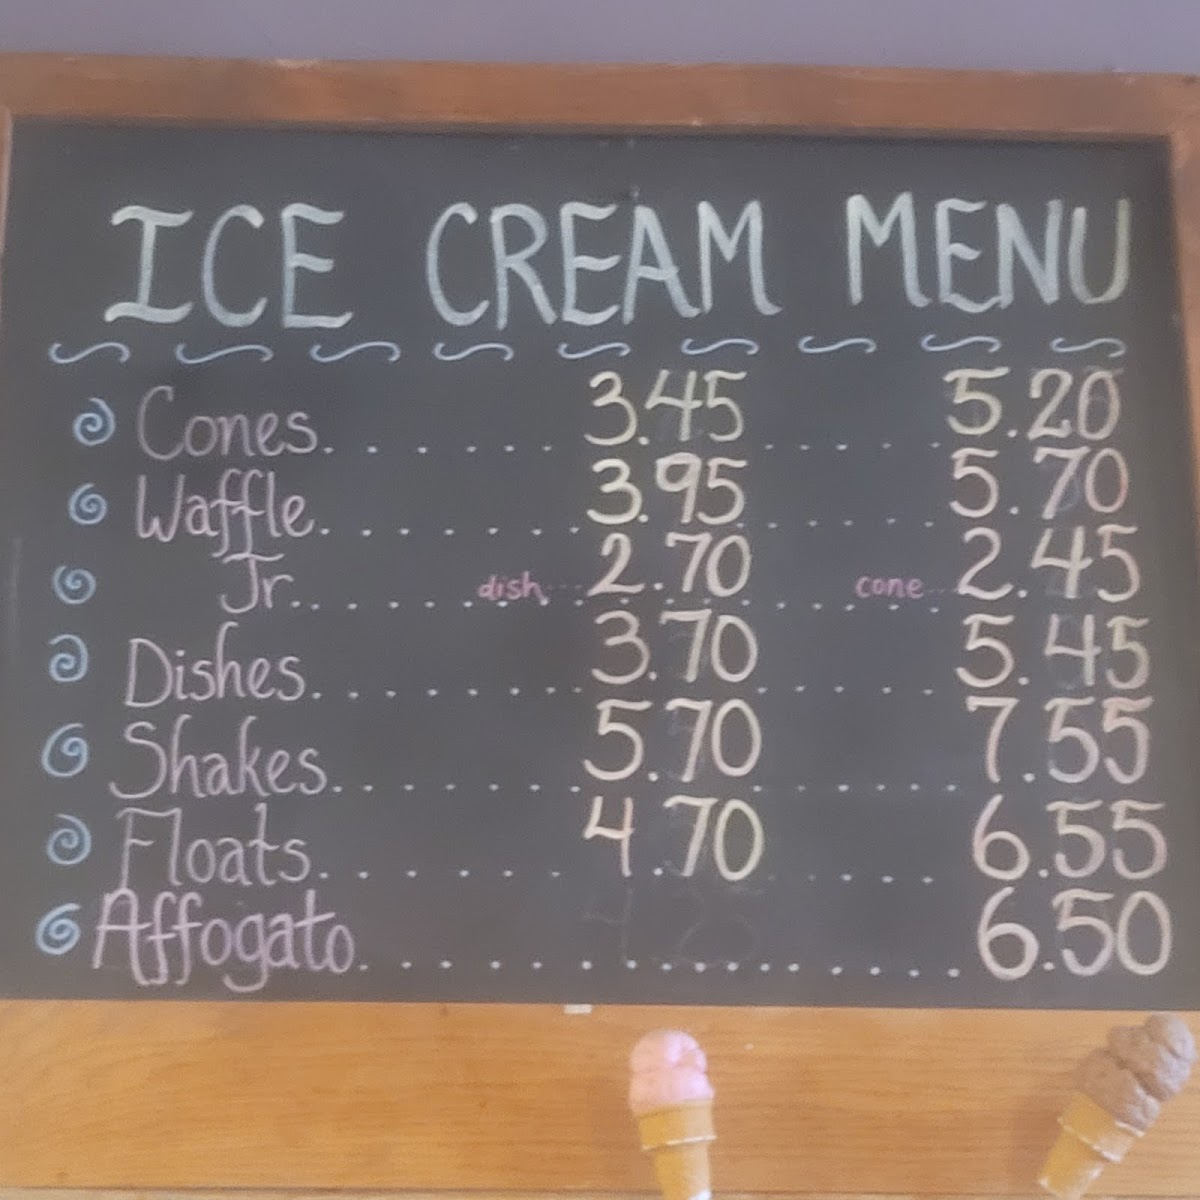 ICE CREAM MENU
Cones. . . . . . . 3.45 . . . . . . 5.20
Waffle. . . . . . . . 3.95 . . . . . . 5.70
Jr. . . . . . . dish . . . 2.70 . . . . . cone . . . 2.45
Dishes. . . . . . . . 3.70 . . . . . . 5.45
Shakes. . . . . . . . 5.70 . . . . . . 7.55
Floats. . . . . . . . 4.70 . . . . . . 6.55
Affogato. . . . . . . . . . . . . . . . . 6.50